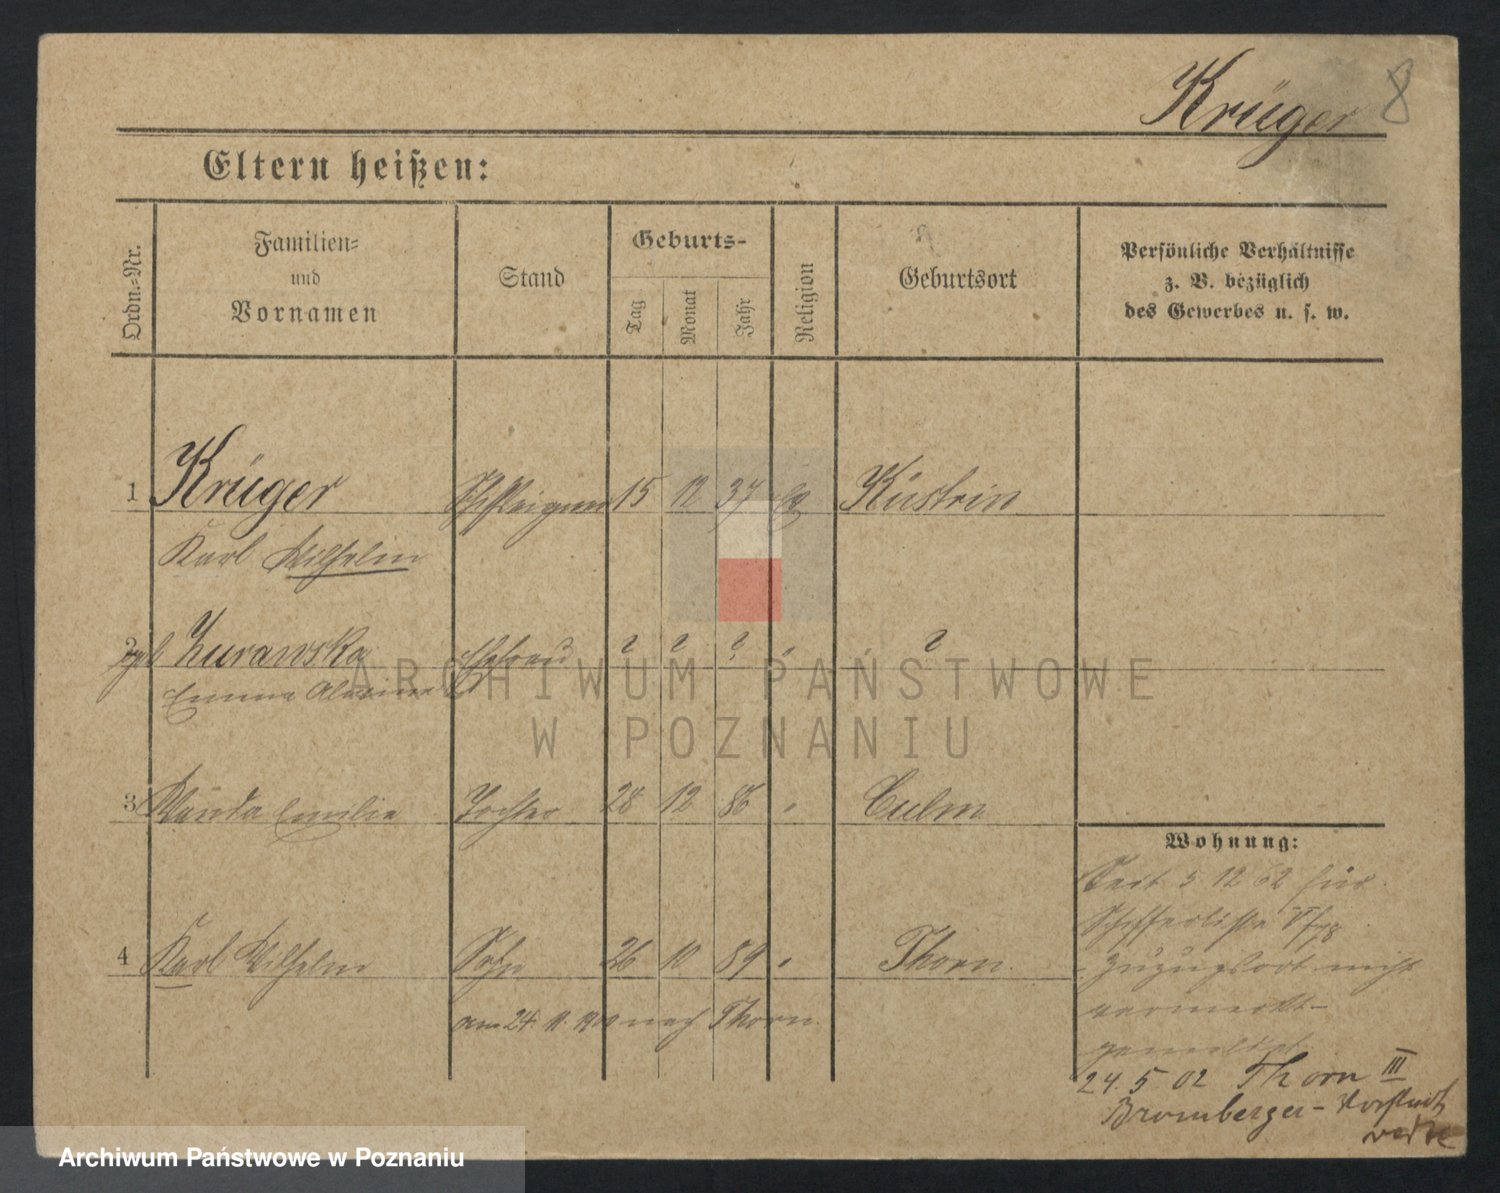 Krüger 8
Eltern heißen:
Ordn.=Nr.
Familien=
und
Vornamen
Stand
Geburts-
Tag
Monat
Jahr
Religion
Geburtsort
Persönliche Verhältnisse
z. B. bezüglich
des Gewerbes u. s. w.
1 Krüger Schiffseigner 15 12 37 ev Küstrin
Karl Wilhelm
2 Zurawska Ehefrau ? ? ? ?
Emma Alwine
3 Wanda Emilie Tochter 28 12 86 " Culm
4 Karl Wilhelm Sohn 26 10 89 " Thorn
am 24. 11. nach Thorn
Wohnung:
Seit 5 12 62 für
Schifferliste
Zuzugsort nicht
vermerkt
gemeldet
24. 5 02 Thorn III
Bromberger-Vorstadt
ARCHIWUM PAŃSTWOWE
W POZNANIU
Archiwum Państwowe w Poznaniu